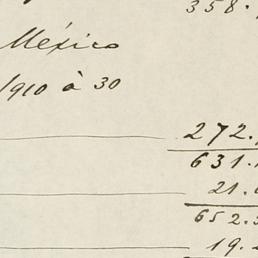 358.
México
1910 à 30
272.
631.
21.
652.
19.